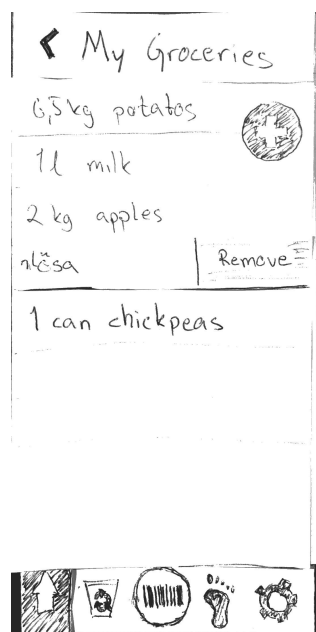 My Groceries
0,5kg potatos
1l milk
2 kg apples
Remove
1 can chickpeas